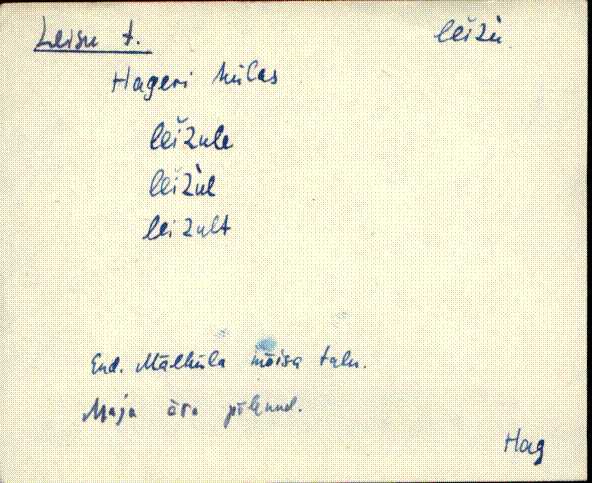 Leisu t. leìzù
Hageri külas
leìzule
leìzul
leizult
End. Mälküla mõisa talu.
Maja ära põlenud.
Hag